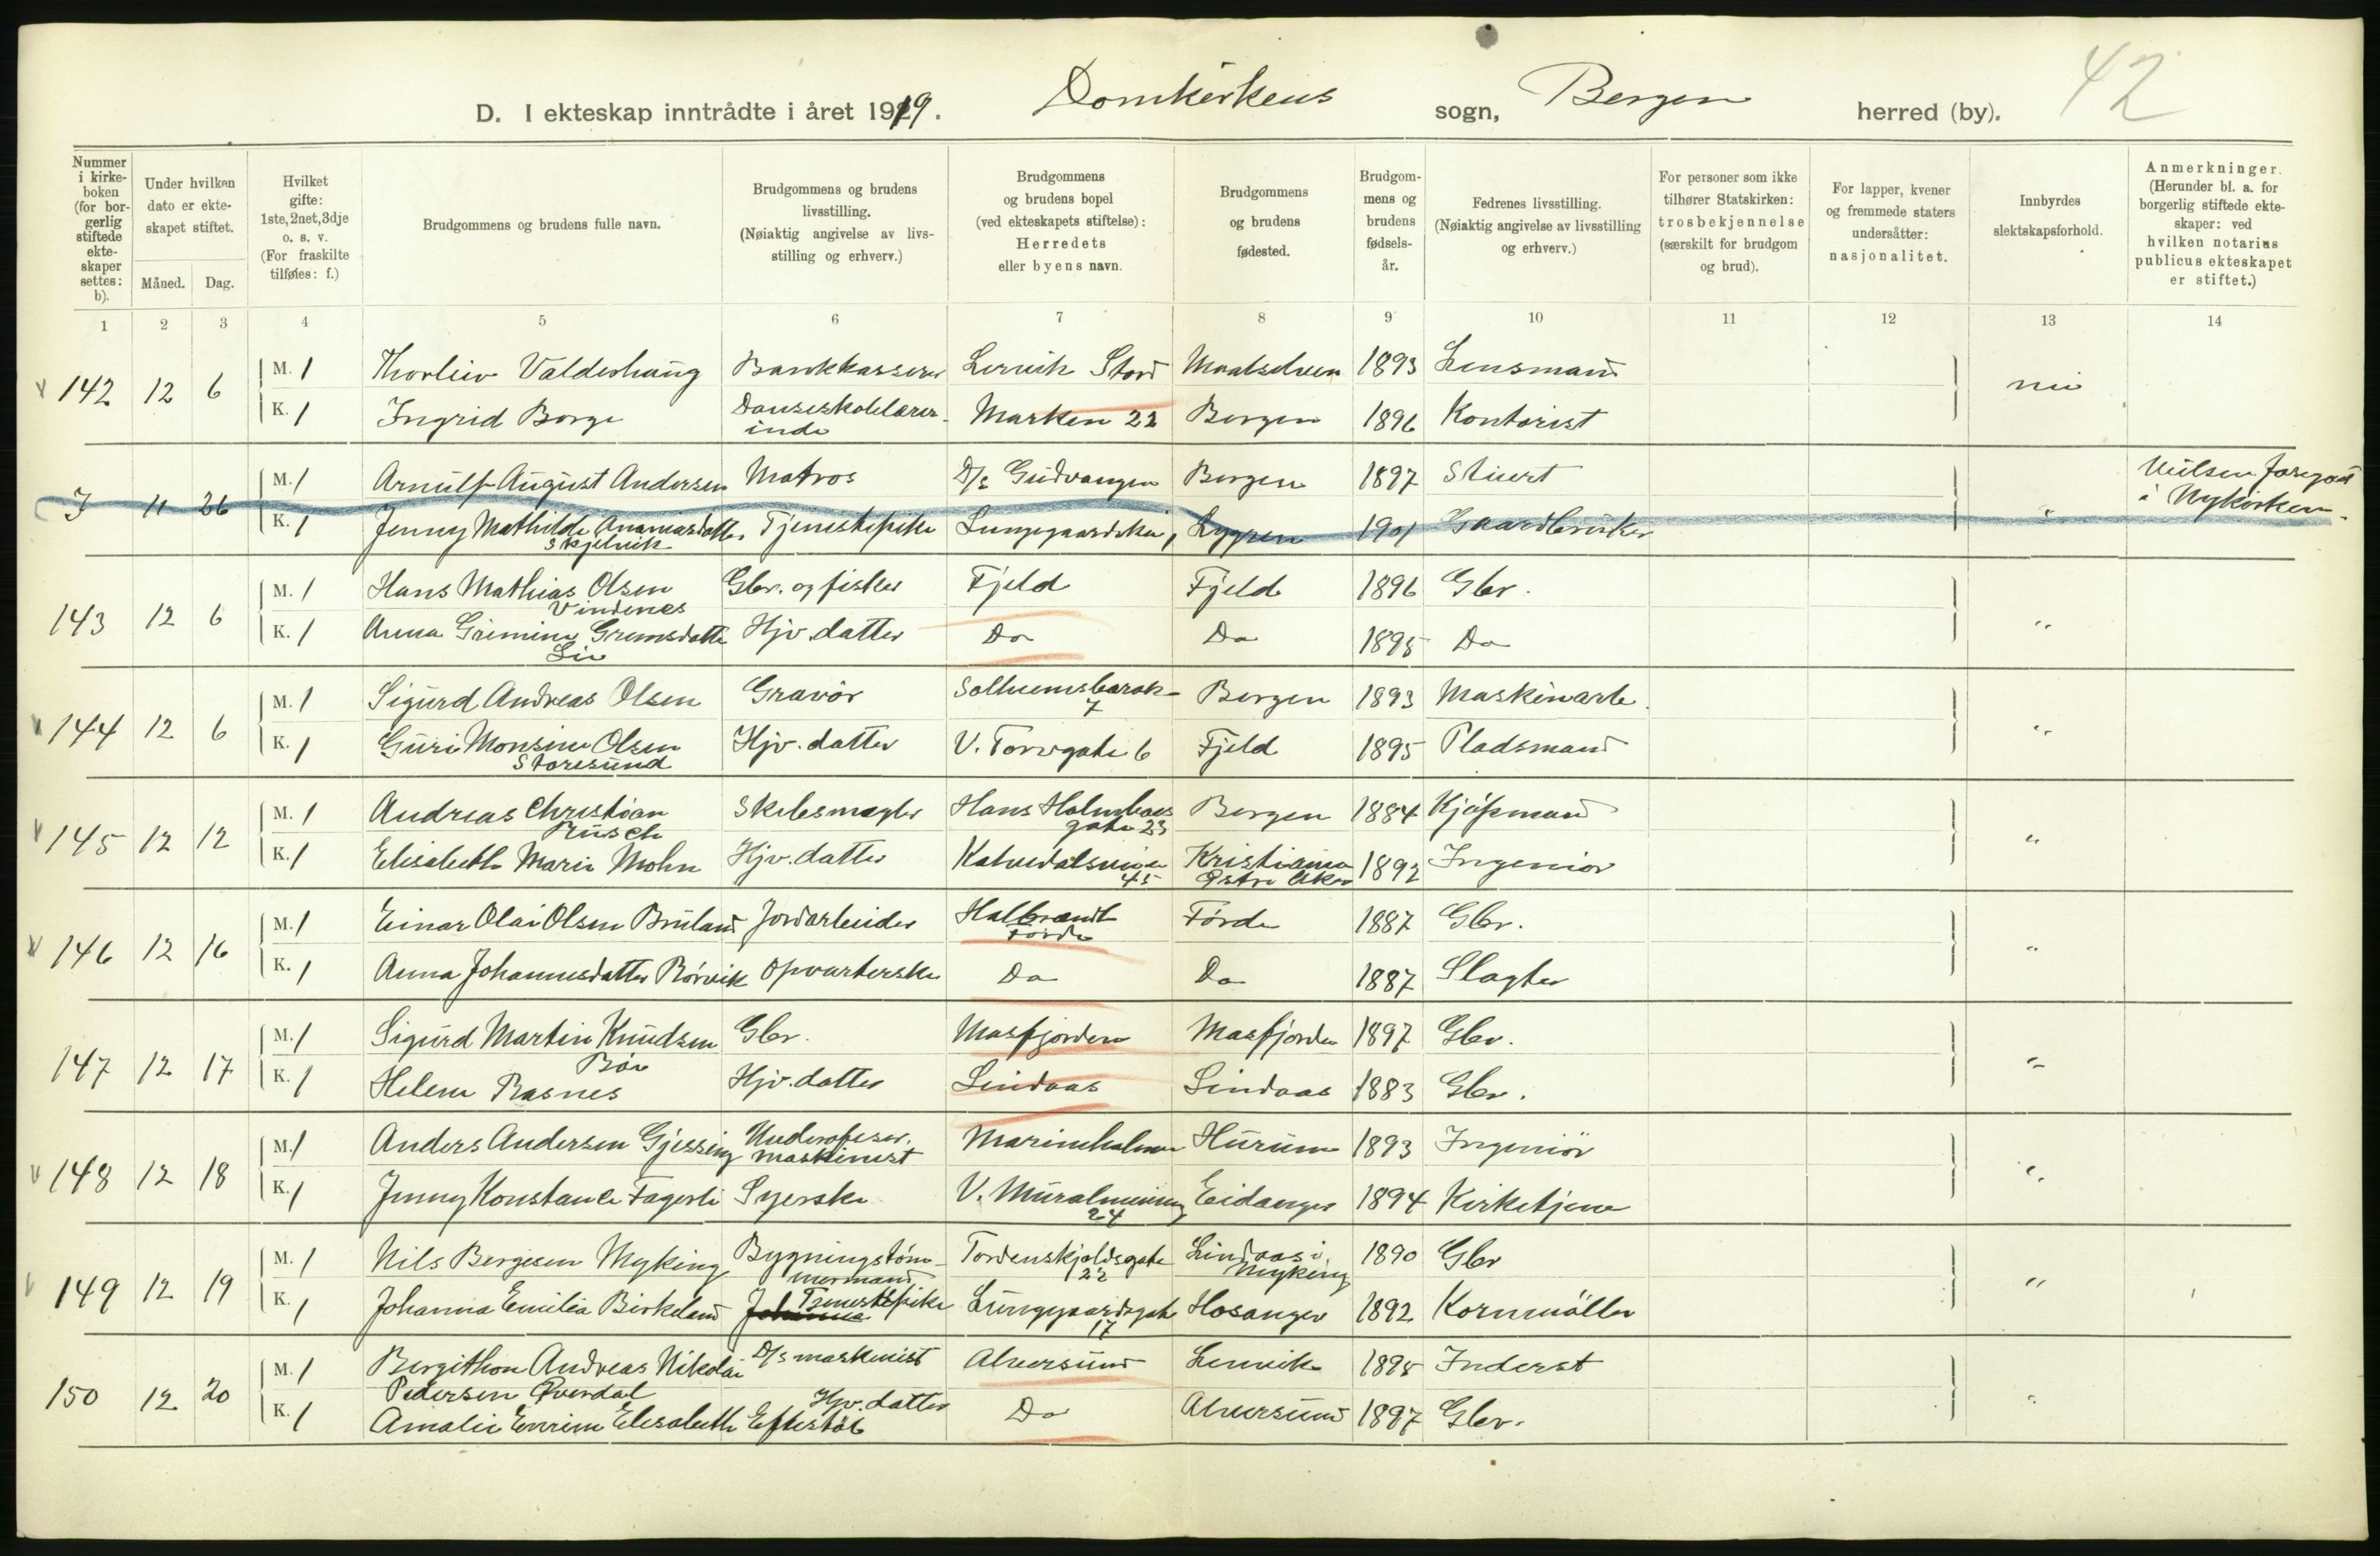 42
D. I ekteskap inntrådte i året 1919. Domkirkens sogn, Bergen herred (by).
Nummer i kirke-boken (for bor-gerlig stiftede ekte-skaper settes: b).
Under hvilken dato er ekte-skapet stiftet.
Måned. Dag.
Hvilket gifte: 1ste, 2net, 3dje o. s. v. (For fraskilte tilføies: f.)
Brudgommens og brudens fulle navn.
Brudgommens og brudens livsstilling. (Nøiaktig angivelse av livs-stilling og erhverv.)
Brudgommens og brudens bopel (ved ekteskapets stiftelse): Herredets eller byens navn.
Brudgommens og brudens fødested.
Brudgom-mens og brudens fødsels-år.
Fedrenes livsstilling. (Nøiaktig angivelse av livsstilling og erhverv.)
For personer som ikke tilhører Statskirken: trosbekjennelse (særskilt for brudgom og brud).
For lapper, kvener og fremmede staters undersåtter: nasjonalitet.
Innbyrdes slektskapsforhold.
Anmerkninger. (Herunder bl. a. for borgerlig stiftede ekte-skaper: ved hvilken notarius publicus ekteskapet er stiftet.)
1 2 3 4 5 6 7 8 9 10 11 12 13 14
142 12 6 M. 1 Thorleiv Valderhaug Bankkasserer Lervik Stord Maalselven 1893 Lensmand nei
K. 1 Ingrid Borge Danseskolelærer-inde Marken 22 Bergen 1896 Kontorist
J 11 26 M. 1 Arnulf August Andersen Matros D/s Gudvangen Bergen 1897 Stuert " i Nykirken
K. 1 Jenny Mathilde Ananiasdatter Skjelvik Tjenestepike Lungegaardskai, Lygren 1901 Gaardbruker
143 12 6 M. 1 Hans Mathias Olsen Vindenes Gbr. og fisker Fjeld Fjeld 1896 Gbr. "
K. 1 Anna Grimine Grimsdatter Lie Hjv. datter Do Do 1895 Do
144 12 6 M. 1 Sigurd Andreas Olsen Gravör Solheimsbarak 7 Bergen 1893 Maskinarb. "
K. 1 Guri Monsine Olsen Storesund Hjv. datter V. Torvgate 6 Fjeld 1895 Pladsmand
145 12 12 M. 1 Andreas Christian Rusch Skibsmægler Hans Holmboes gate 23 Bergen 1884 Kjøpmand "
K. 1 Elisabeth Marie Mohn Hjv. datter Kalvedalsveien 45 Kristiania Østre Aker 1892 Ingeniør
146 12 16 M. 1 Einar Olai Olsen Bruland Jordarbeider Halbrendt Førde Førde 1887 Gbr. "
K. 1 Anna Johannesdatter Rörvik Opvarterske Do Do 1887 Slagter
147 12 17 M. 1 Sigurd Martin Knudsen Böe Gbr. Masfjorden Masfjorden 1897 Gbr. "
K. 1 Helene Risnes Hjv. datter Lindaas Lindaas 1883 Gbr.
148 12 18 M. 1 Anders Andersen Gjessing Underofficer. maskinist Marineholmen Hurum 1893 Ingeniör "
K. 1 Jenny Konstance Fagerli Syerske V. Muralmenning 24 Eidanger 1894 Kirketjener
149 12 19 M. 1 Nils Bergesen Myking Bygningstøm-mermand Tordenskjoldsgate 22 Lindaas i Myking 1890 Gbr "
K. 1 Johanna Emilia Birkeland Tjenestepike Lungegaardsgate 17 Hosanger 1892 Kornmöller
150 12 20 M. 1 Bergithon Andreas Nikolai Pedersen Øverdal D/s maskinist Alversund Lenvik 1895 Inderst "
K. 1 Amalie Enrine Elisabeth Eftestöl Hjv. datter Do Alversund 1897 Gbr.